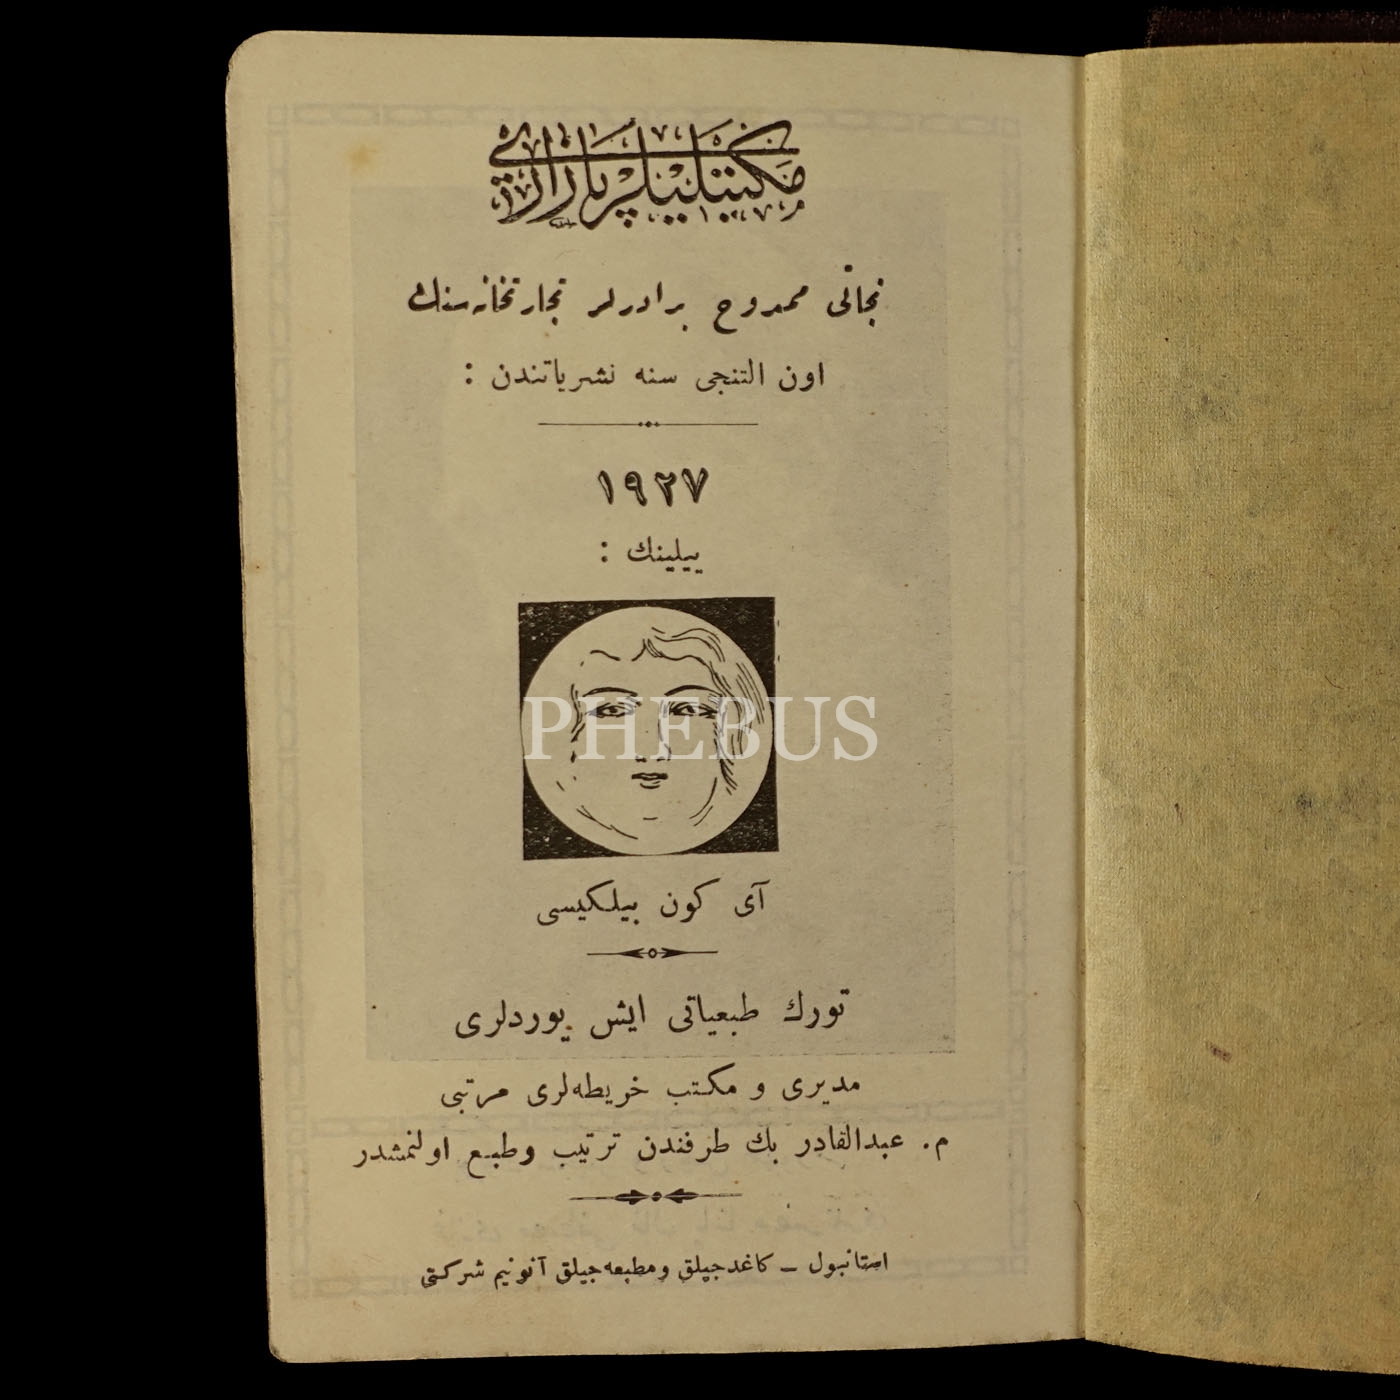 مكتبليلر پازارى
نجاتى ممدوح برادرلر تجارتخانه‌سنك
اون التنجى سنه نشرياتندن :
١٩٢٧
ييلينك :
PHEBUS
آى كون بيلكيسى
تورك طبعياتى ايش يوردلرى
مديرى و مكتب خريطه‌لرى مرتبى
م. عبدالقادر بك طرفندن ترتيب وطبع اولنمشدر
استانبول – كاغدجيلق ومطبعه‌جيلق آنونيم شركتى